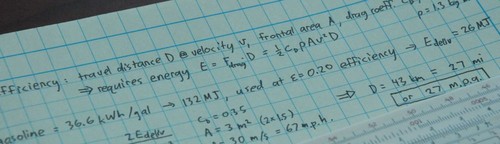 Efficiency: travel distance D @ velocity v, frontal area A, drag coeff. C_D,
ρ = 1.3 kg
⇒ requires energy E = F_drag D = ½ C_D ρ A v² D
Gasoline = 36.6 kWh/gal → 132 MJ, used at ε = 0.20 efficiency → E_deliv = 26 MJ
C_D = 0.35
A = 3 m² (2 x 1.5)
= 30 m/s = 67 m.p.h.
2 E_deliv
⇒ D = 43 km = 27 mi
or 27 m.p.g.